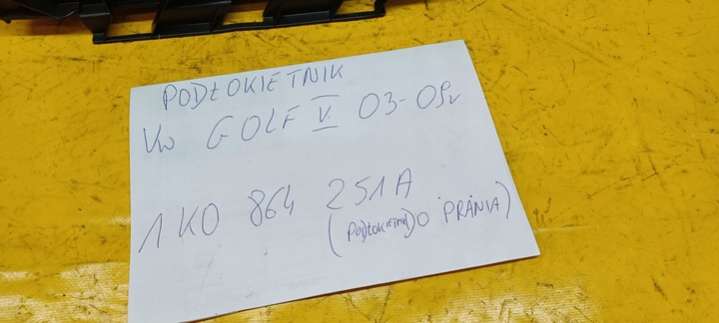 PODŁOKIETNIK
VW GOLF V 03-09r
1K0 864 251A
(PODŁOKIETNIK DO PRANIA)